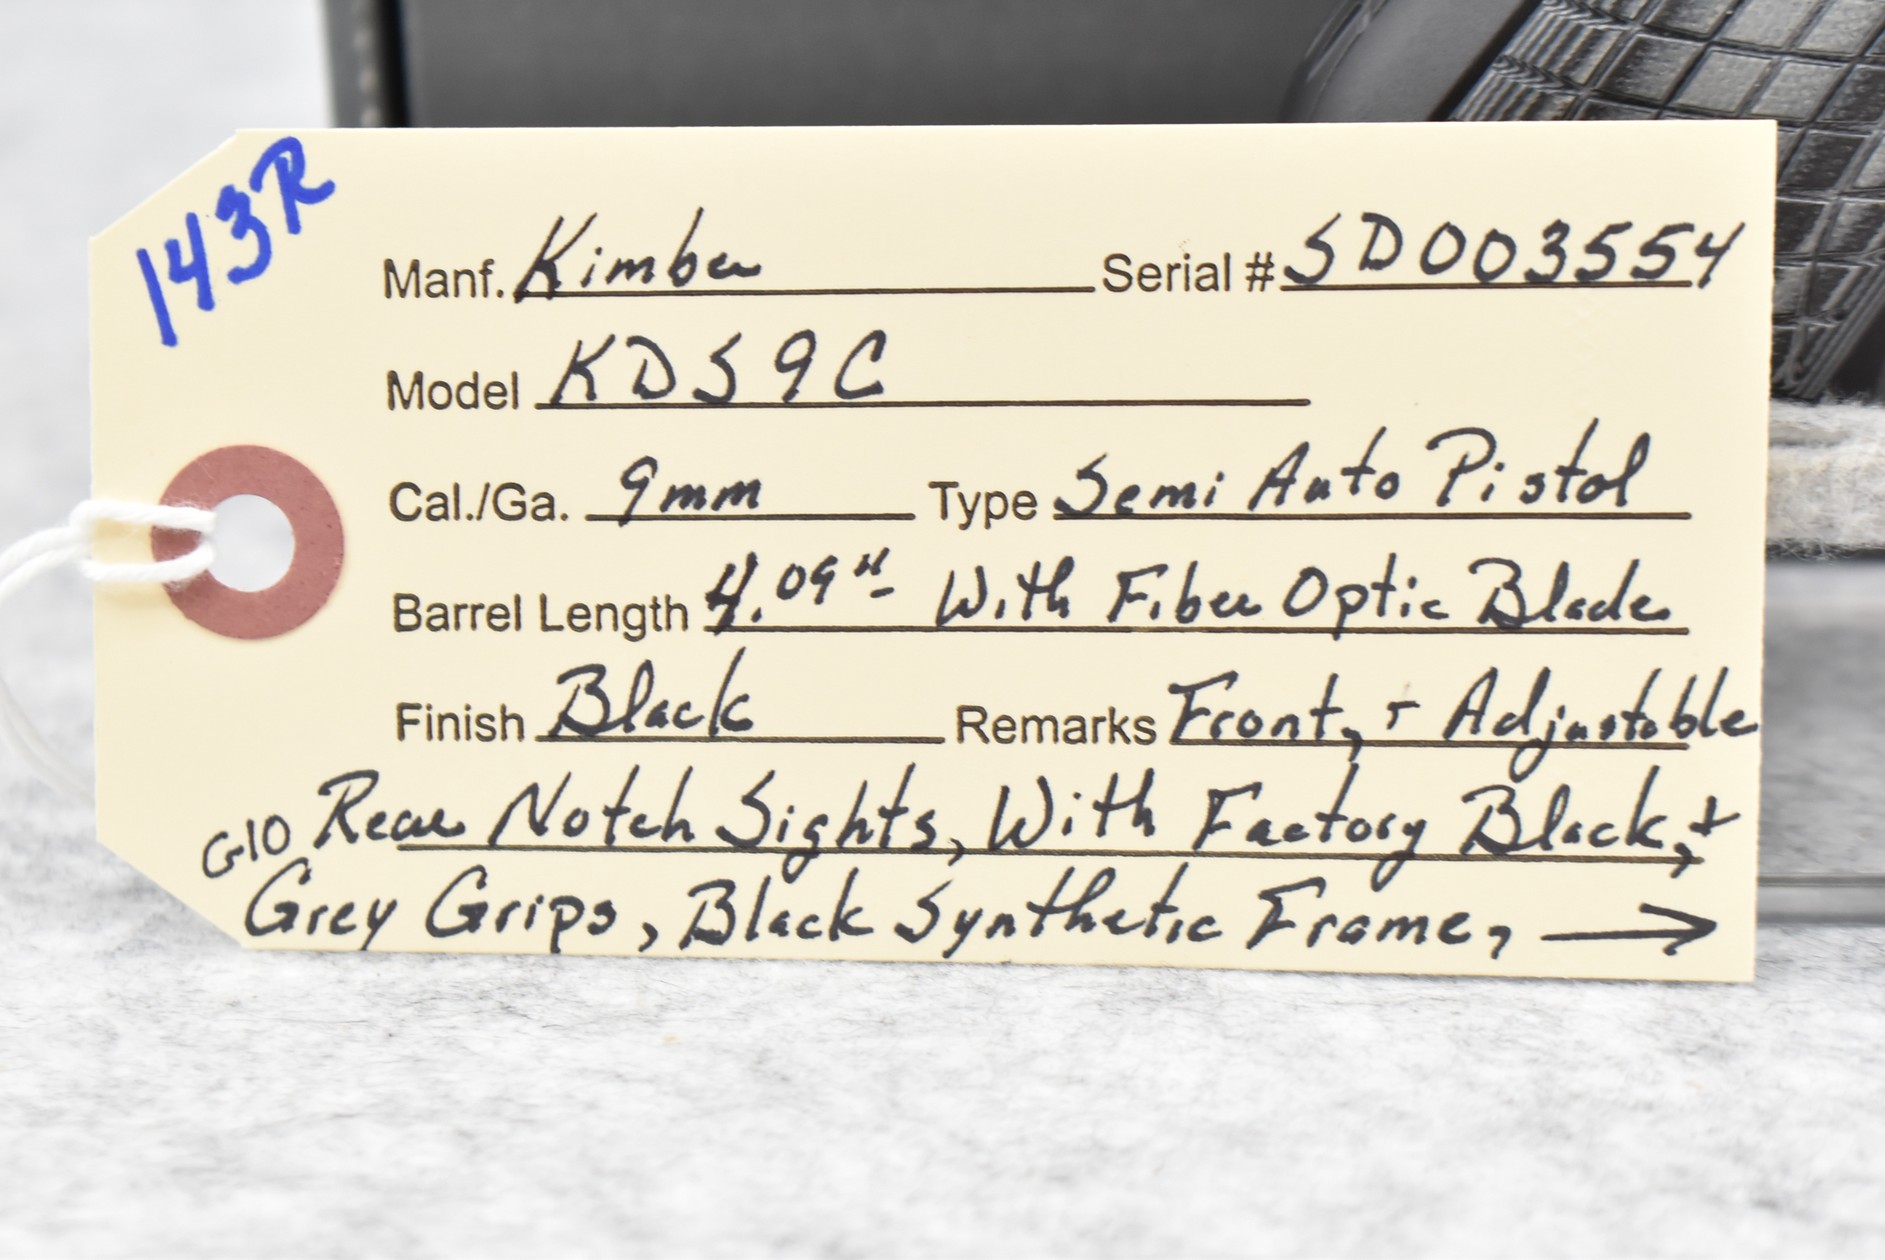 143R
Manf. Kimber Serial # SD003554
Model KDS9C
Cal./Ga. 9mm Type Semi Auto Pistol
Barrel Length 4.09" With Fiber Optic Blade
Finish Black Remarks Front, + Adjustable
Rear Notch Sights, With Factory Black, +
G10 Grey Grips, Black Synthetic Frame, →